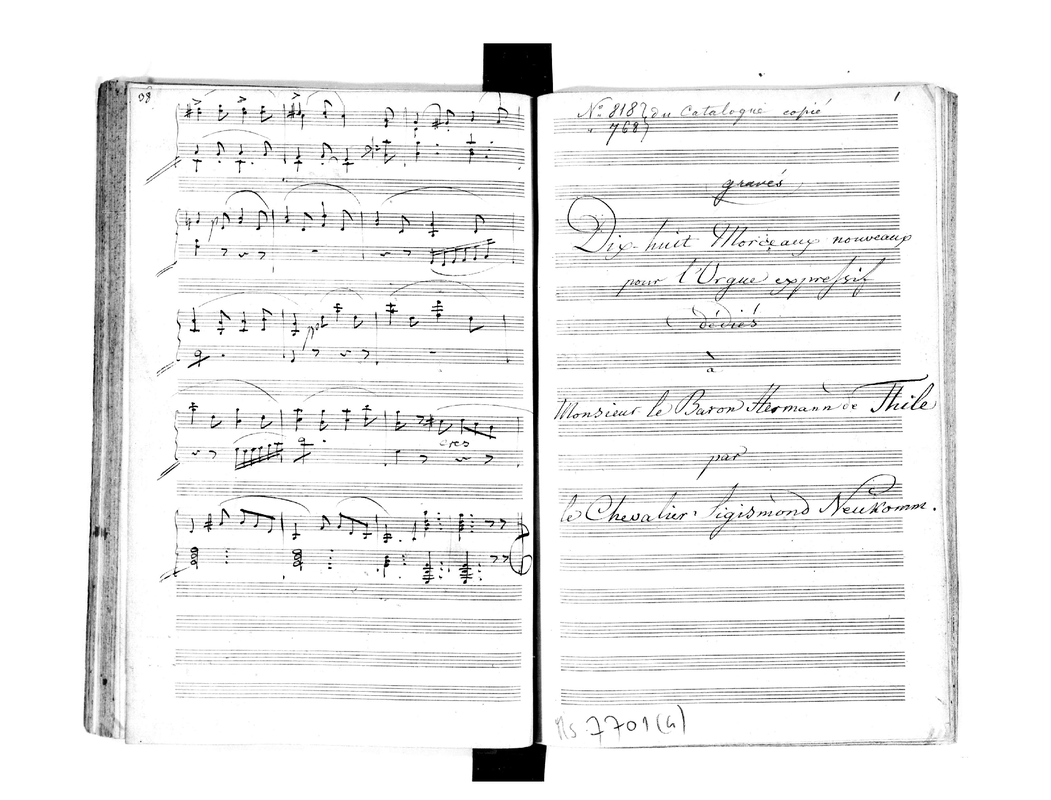 98
cres
1
No 818 } du Catalogue copié
" 768 }
gravés
Dix-huit Morceaux nouveaux
pour l'Orgue expressif
dédiés
à
Monsieur le Baron Hermann de Thile
par
le Chevalier Sigismond Neukomm.
Ms. 7701(4)